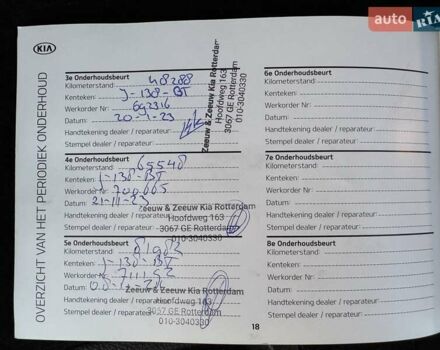 auto RIA
KIA
OVERZICHT VAN HET PERIODIEK ONDERHOUD
3e Onderhoudsbeurt
Kilometerstand: 48288
Kenteken: J-138-BT
Werkorder Nr: 692316
Datum: 20-1-23
Handtekening dealer / reparateur:
Stempel dealer / reparateur:
Zeeuw & Zeeuw Kia Rotterdam
Hoofdweg 163
3067 GE Rotterdam
010-3040330
4e Onderhoudsbeurt
Kilometerstand: 65548
Kenteken: J-138-BT
Werkorder Nr: 700665
Datum: 21-11-23
Handtekening dealer / reparateur:
Stempel dealer / reparateur:
Zeeuw & Zeeuw Kia Rotterdam
Hoofdweg 163
3067 GE Rotterdam
010-3040330
5e Onderhoudsbeurt
Kilometerstand:
Kenteken: J-138-BT
Werkorder
Datum
Handtekening dealer / reparateur:
Stempel dealer / reparateur:
Zeeuw & Zeeuw Kia Rotterdam
Hoofdweg 163
3067 GE Rotterdam
010-3040330
6e Onderhoudsbeurt
Kilometerstand:
Kenteken:
Werkorder Nr:
Datum:
Handtekening dealer / reparateur:
Stempel dealer / reparateur:
7e Onderhoudsbeurt
Kilometerstand:
Kenteken:
Werkorder Nr:
Datum:
Handtekening dealer / reparateur:
Stempel dealer / reparateur:
8e Onderhoudsbeurt
Kilometerstand:
Kenteken:
Werkorder Nr:
Datum:
Handtekening dealer / reparateur:
Stempel dealer / reparateur:
18